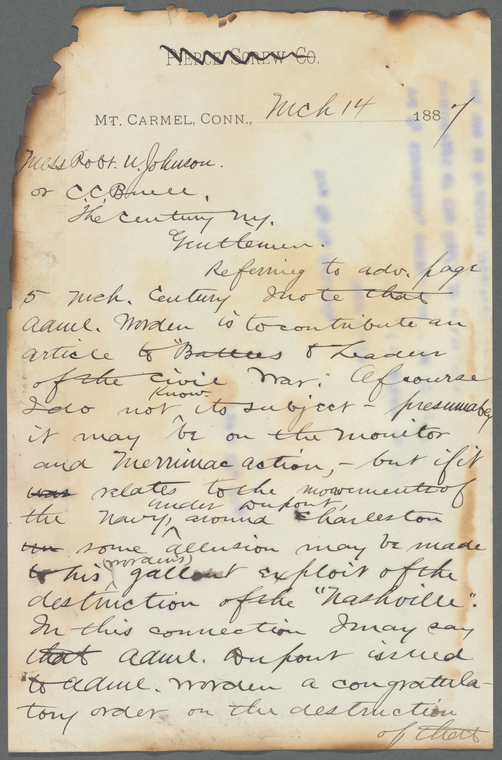 PIERCE SCREW CO.
MT. CARMEL, CONN., Mch 14 1887
Mess Robt. U. Johnson.
or C.C. Buell,
The Century N.Y.
Gentlemen.
Referring to adv. page
5 Mch. Century I note that
Adml. Worden is to contribute an
article to "Battles & Leaders
of the Civil War." Of course
I do not know its subject - presumably
it may be on the Monitor
and Merrimac action, - but if it
was relates to the movements of
the Navy, under Dupont, around Charleston
some allusion may be made
to his (Wordens) gallant exploit of the
destruction of the "Nashville".
In this connection I may say
that Adml. Dupont issued
to Adml. Worden a congratula-
tory order on the destruction
of that